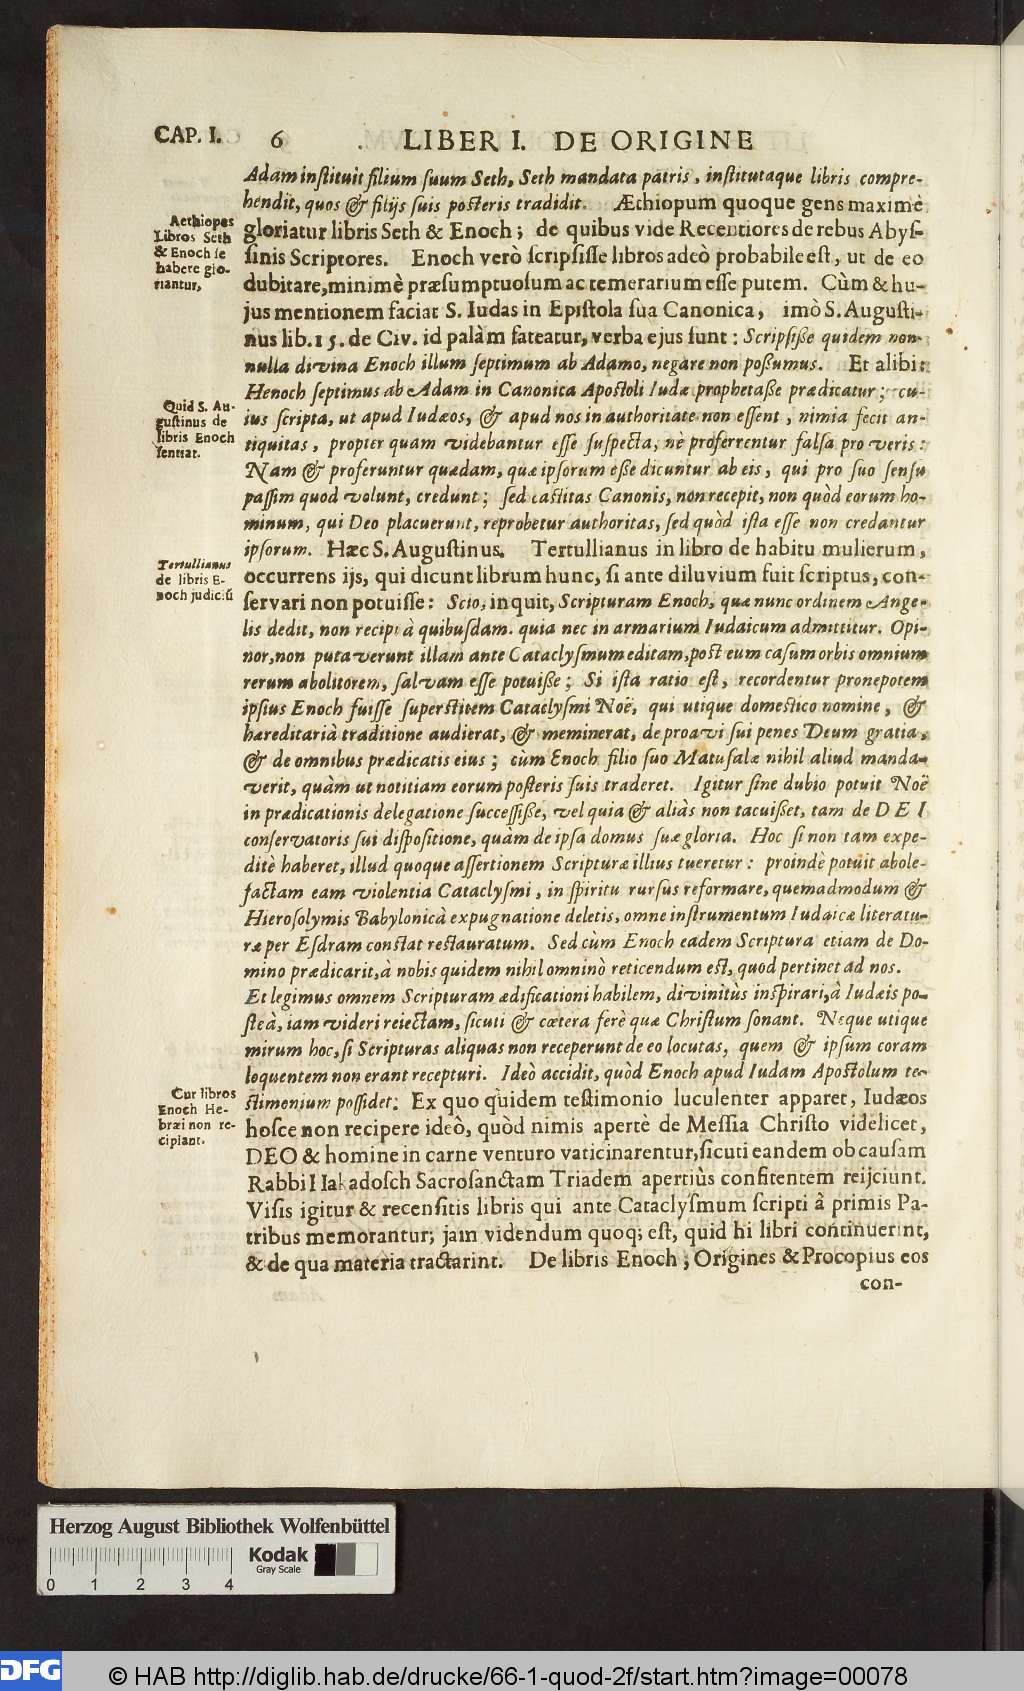 CAP. I. 6 LIBER I. DE ORIGINE
Adam instituit filium suum Seth, Seth mandata patris, institutaque libris compre-
hendit, quos & filijs suis posteris tradidit. Æthiopum quoque gens maximè
Aethiopes
Libros Seth
& Enoch se
habere glo-
riantur,
gloriatur libris Seth & Enoch; de quibus vide Recentiores de rebus Abys-
sinis Scriptores. Enoch verò scripsisse libros adeò probabile est, ut de eo
dubitare, minimè præsumptuosum ac temerarium esse putem. Cùm & hu-
jus mentionem faciat S. Iudas in Epistola sua Canonica, imò S. Augusti-
nus lib. 15. de Civ. id palàm fateatur, verba ejus sunt: Scripsiße quidem non-
nulla divina Enoch illum septimum ab Adamo, negare non poßumus. Et alibi:
Henoch septimus ab Adam in Canonica Apostoli Iudæ prophetaße prædicatur; cu-
Quid S. Au-
gustinus de
libris Enoch
sentiat.
ius scripta, ut apud Iudæos, & apud nos in authoritate non essent, nimia fecit an-
tiquitas, propter quam videbantur esse suspecta, nè proferrentur falsa pro veris:
Nam & proferuntur quædam, quæ ipsorum eße dicuntur ab eis, qui pro suo sensu
passim quod volunt, credunt; sed castitas Canonis, non recepit, non quòd eorum ho-
minum, qui Deo placuerunt, reprobetur authoritas, sed quòd ista esse non credantur
ipsorum. Hæc S. Augustinus. Tertullianus in libro de habitu mulierum,
Tertullianus
de libris E-
noch judiciũ
occurrens ijs, qui dicunt librum hunc, si ante diluvium fuit scriptus, con-
servari non potuisse: Scio, inquit, Scripturam Enoch, quæ nunc ordinem Ange-
lis dedit, non recipi à quibusdam. quia nec in armarium Iudaicum admittitur. Opi-
nor, non putaverunt illam ante Cataclysmum editam, post eum casum orbis omnium
rerum abolitorem, salvam esse potuiße; Si ista ratio est, recordentur pronepotem
ipsius Enoch fuisse superstitem Cataclysmi Noë, qui utique domestico nomine, &
hæreditariâ traditione audierat, & meminerat, de proavi sui penes Deum gratia,
& de omnibus prædicatis eius; cùm Enoch filio suo Matusalæ nihil aliud manda-
verit, quàm ut notitiam eorum posteris suis traderet. Igitur sine dubio potuit Noë
in prædicationis delegatione successiße, vel quia & aliàs non tacuißet, tam de DEI
conservatoris sui dispositione, quàm de ipsa domus suæ gloria. Hoc si non tam expe-
ditè haberet, illud quoque assertionem Scripturæ illius tueretur: proindè potuit abole-
factam eam violentia Cataclysmi, in spiritu rursus reformare, quemadmodum &
Hierosolymis Babylonicâ expugnatione deletis, omne instrumentum Iudaicæ literatu-
ræ per Esdram constat restauratum. Sed cùm Enoch eadem Scriptura etiam de Do-
mino prædicarit, à nobis quidem nihil omninò reticendum est, quod pertinet ad nos.
Et legimus omnem Scripturam ædificationi habilem, divinitùs inspirari, à Iudæis po-
steà, iam videri reiectam, sicuti & cætera ferè quæ Christum sonant. Neque utique
mirum hoc, si Scripturas aliquas non receperunt de eo locutas, quem & ipsum coram
loquentem non erant recepturi. Ideò accidit, quòd Enoch apud Iudam Apostolum te-
Cur libros
Enoch He-
bræi non re-
cipiant.
stimonium possidet: Ex quo quidem testimonio luculenter apparet, Iudæos
hosce non recipere ideò, quòd nimis apertè de Messia Christo videlicet,
DEO & homine in carne venturo vaticinarentur, sicuti eandem ob causam
Rabbi Hakadosch Sacrosanctam Triadem apertiùs confitentem reijciunt.
Visis igitur & recensitis libris qui ante Cataclysmum scripti à primis Pa-
tribus memorantur; jam videndum quoq; est, quid hi libri continuerint,
& de qua materia tractarint. De libris Enoch; Origines & Procopius eos
con-
Herzog August Bibliothek Wolfenbüttel
Kodak
Gray Scale
0 1 2 3 4
DFG
© HAB http://diglib.hab.de/drucke/66-1-quod-2f/start.htm?image=00078